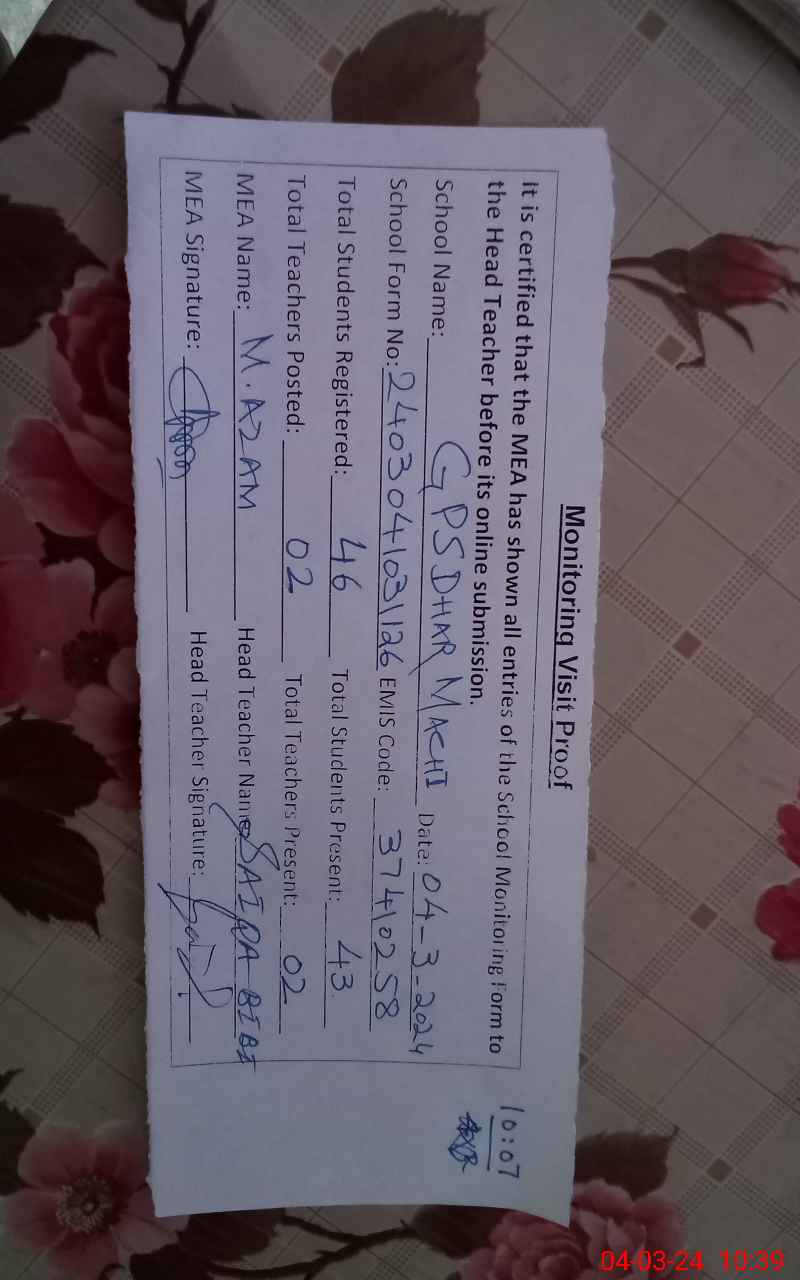 Monitoring Visit Proof
It is certified that the MEA has shown all entries of the School Monitoring Form to
the Head Teacher before its online submission.
10:07
School Name: GPS DHAR MACHI Date: 04-3-2024
School Form No: 2403041031126 EMIS Code: 37410258
Total Students Registered: 46 Total Students Present: 43
Total Teachers Posted: 02 Total Teachers Present: 02
MEA Name: M. AZAM Head Teacher Name: SAIRA BIBI
MEA Signature: Head Teacher Signature:
04-03-24 10:39